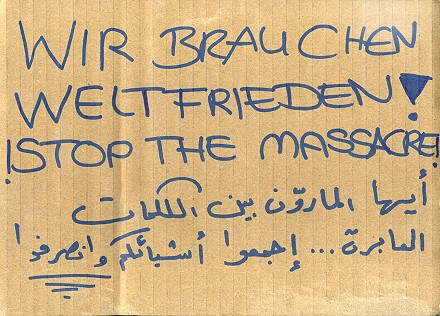 WIR BRAUCHEN
WELTFRIEDEN!
!STOP THE MASSACRE!
أيها المارّون بين الكلمات
العابرة... إجمعوا أشيائكم وانصرفوا